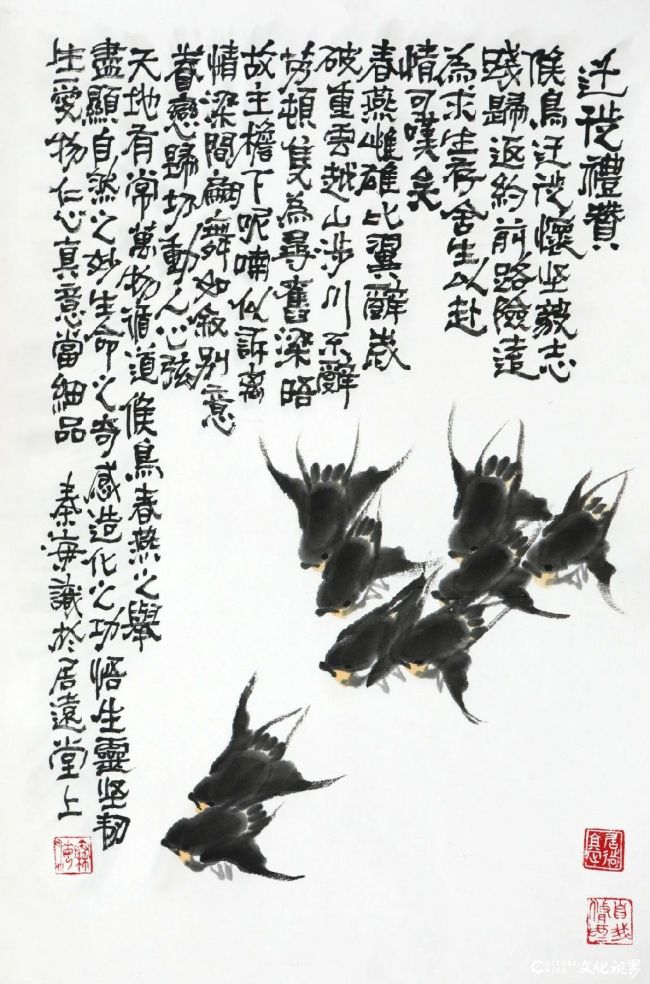 迁徙禮贊
候鳥迁徙懷坚毅志
踐歸返約前路險遠
為求生存舍生以赴
情可嘆矣
春燕雌雄比翼辭歲
破重雲越山涉川不辭
勞頓隻為尋舊梁晤
故主檐下呢喃似訴离
情梁間翩舞如敘别意
眷戀歸切動人心弦
天地有常萬物循道候鳥春燕之舉
盡顯自然之妙生命之奇感造化之功悟生靈坚韧
生愛物仁心真意當細品 秦海識於居遠堂上
CULTURE CHINA 文化視界